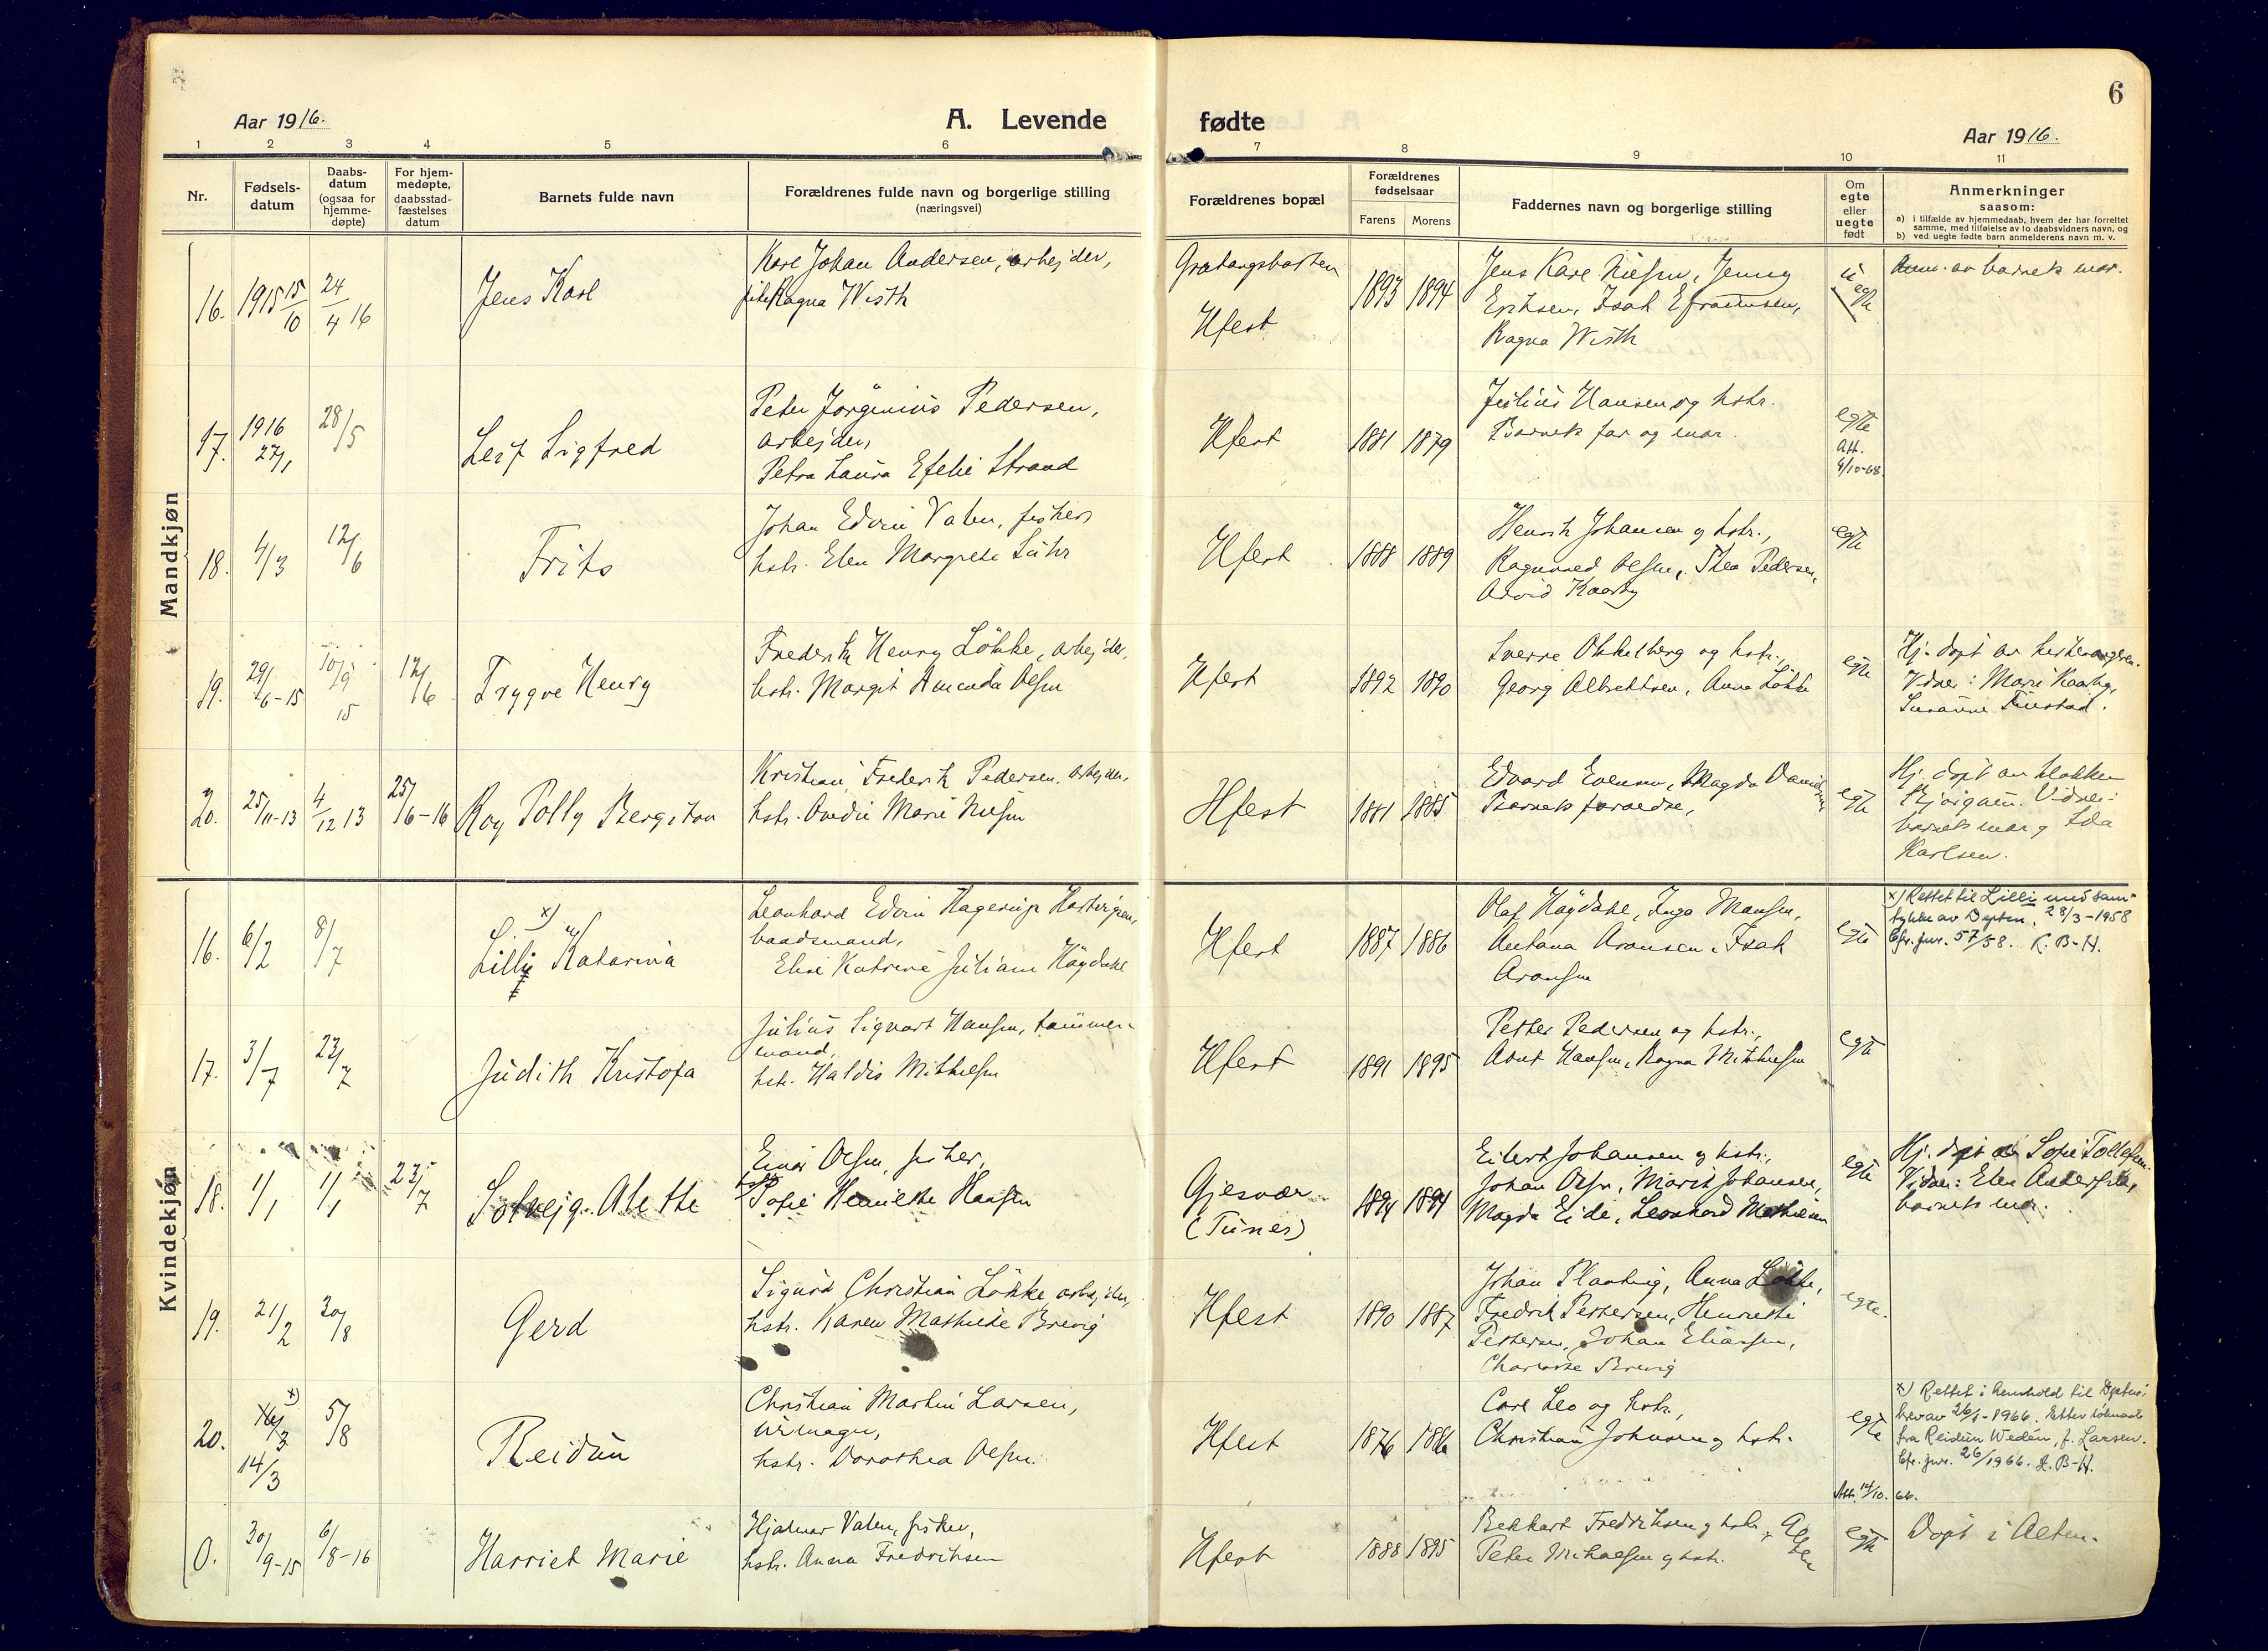 6
Aar 1916.
A. Levende
fødte
Aar 1916.
1 2 3 4 5 6 7 8 9 10 11
Nr.
Fødsels-
datum
Daabs-
datum
(ogsaa for
hjemme-
døpte)
For hjem-
medøpte,
daabsstad-
fæstelses
datum
Barnets fulde navn
Forældrenes fulde navn og borgerlige stilling
(næringsvei)
Forældrenes bopæl
Forældrenes
fødselsaar
Farens Morens
Faddernes navn og borgerlige stilling
Om
egte
eller
uegte
født
Anmerkninger
saasom:
a) i tilfælde av hjemmedaab, hvem der har forrettet
samme, med tilføielse av to daabsvidners navn, og
b) ved uegte fødte barn anmelderens navn m. v.
Mandkjøn
16. 1915 15/10
24/4 16
Jens Karl
Karl Johan Andersen, arbejder,
Ragna Wisth
Hfest
1893 1894
Jens Karl Nielsen, Jenny
Eriksen, Isak Efraimsen,
Ragna Wisth
u
egte
Anm. av barnets mor.
17. 1916
27/1
28/5
Leif Sigfred
Peter Jörginius Pedersen,
arbejder,
Petra Laura Efelie Strand
Hfest
1881 1879
Julius Hansen og hstr.
Barnets far og mor.
egte
Att.
4/10-68.
18. 4/3 12/6
Frits
Johan Edvin Valen, fisker
hstr. Elen Margrete Lühr
Hfest
1888 1889
Henrik Johansen og hstr.,
Ragnvald Olsen, Thea Pedersen,
Arvid Kaarby
egte
19. 29/6-15
10/9
15
12/6
Trygve Henry
Frederik Henry Lökke, arbejder,
hstr. Margit Amanda Olsen
Hfest
1892 1890
Sverre Okkelsberg og hstr.,
Georg Albrektsen, Anna Lökke
egte
Hj. döpt av
Vidner: Marie Kaarby,
Susanne Finstad.
20. 25/11-13
4/12 13
25/6-16
Roy Polly Bergiton
Kristian Frederik Pedersen, arbejder,
hstr. Ovedie Marie Nielsen
Hfest
1881 1885
Edvard Evensen, Magda Danielsen,
Barnets foraeldre,
egte
Hj. döpt av klokker
Vidner:
barnets mor og Ida
Karlsen.
Kvindekjøn
16. 6/2 8/7
x)
Lilly Katarina
Leonhard Edvin Hagerup
baadsmand,
Elise Katrine Juliane Högdahl
Hfest
1887 1886
Olaf Högdahl, Inga Monsen,
Antona Aronsen, Isak
Aronsen
egte
x) Rettet til Lilli med sam-
tykke av Dpten. 28/3-1958
Cfr. jur. 57/58. K. B-H.
17. 3/7 23/7
Judith Kristofa
Julius Sigvart Hansen, tømmer-
mand,
hstr. Haldis Mikkelsen
Hfest
1891 1895
Petter Pedersen og hstr.,
Arnt Hansen, Ragna Mikkelsen
egte
18. 1/1 1/1 23/7
Solvejg Alette
Einar Olsen, fisker,
Sofie Henriette Hansen
Gjesvær
(Tunes)
1894 1894
Eilert Johansen og hstr.,
Johan Olsen, Marit Johansen,
Magda Eide, Leonhard Mathisen
egte
Hj. döpt av Sofie Tollefsen.
Vidner: Elen Andersen,
barnets mor.
19. 21/2 30/8
Gerd
Sigurd Christian Lökke, arbejder,
hstr. Karen Mathilde Brevig
Hfest
1890 1887
Johan Planting, Anna Lökke,
Fredrik Pettersen, Henriette
Pettersen, Johan Eliassen,
Charlotte Brevig
egte.
20. x)
14/3
5/8
Reidun
Christian Martin Larsen,
urmager,
hstr. Dorothea Olsen
Hfest
1876 1886
Carl Leo og hstr.,
Christian Johnsen og hstr.
egte
Att. 14/10. 66.
x) Rettet i henhold til Dptns.
brev av 26/1-1966. Etter søknad
fra Reidun Wedén, f. Larsen.
Cfr. jur. 26/1966. K. B-H.
0. 30/9-15
6/8-16
Harriet Marie
Hjalmar Valen, fisker,
hstr. Anna Fredriksen
Hfest
1888 1895
Bekkart Fredriksen og hstr.
Peter Mikalsen og hstr.
egte
Döpt i Alten.